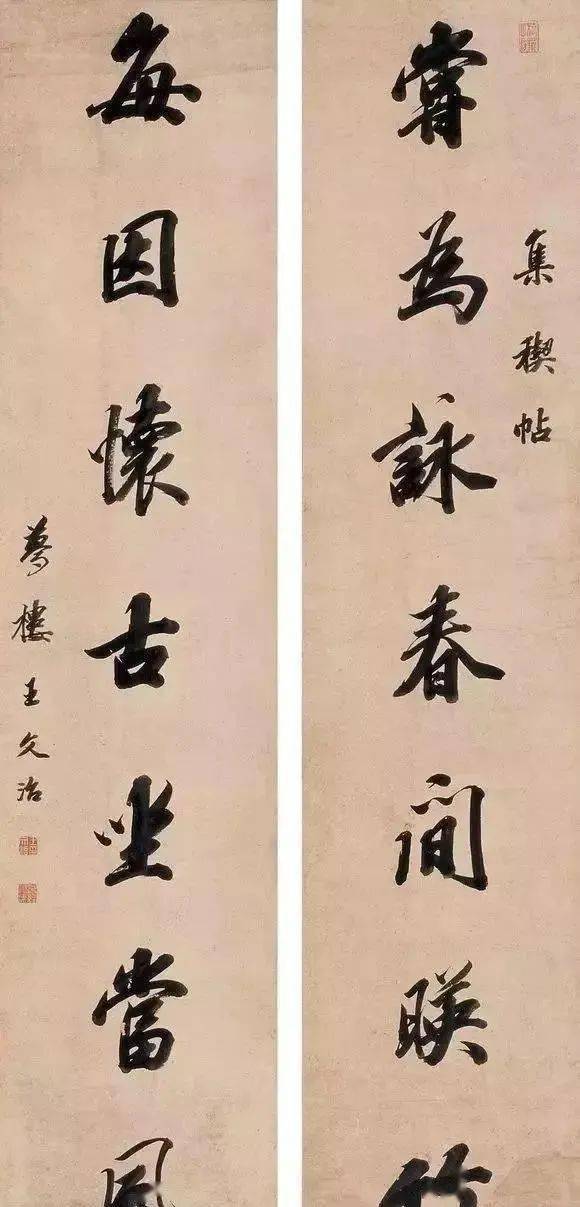 集禊帖
嘗為詠春間暎竹
每因懷古坐當風
夢樓王文治